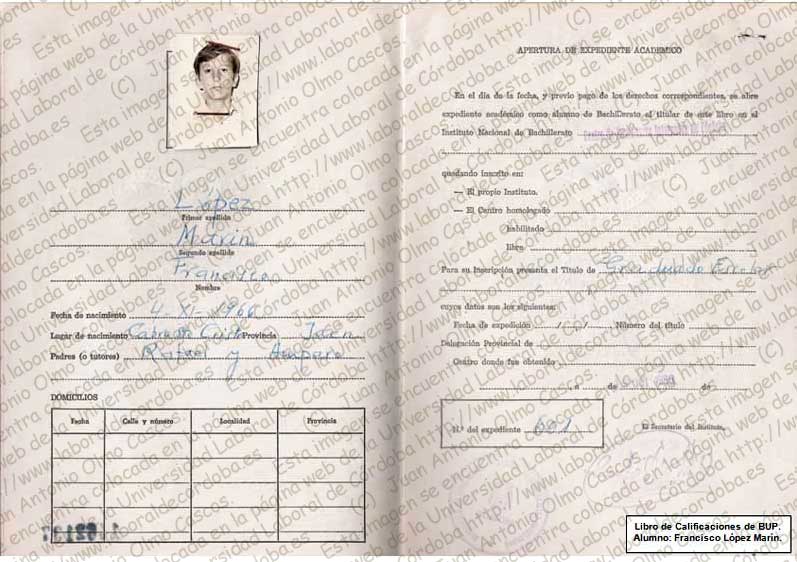 López
Primer apellido
Marín
Segundo apellido
Francisco
Nombre
Fecha de nacimiento 4-XI-1966
Lugar de nacimiento Cabra Sto Cristo Provincia Jaén
Padres (o tutores) Rafael y Amparo
DOMICILIOS
Fecha Calle y número Localidad Provincia
APERTURA DE EXPEDIENTE ACADEMICO
En el día de la fecha, y previo pago de los derechos correspondientes, se abre
expediente académico como alumno de Bachillerato al titular de este libro en el
Instituto Nacional de Bachillerato
quedando inscrito en:
— El propio Instituto.
— El Centro homologado
habilitado
libre
Para su inscripción presenta el Título de Graduado Escolar
cuyos datos son los siguientes:
Fecha de expedición Número del título
Delegación Provincial de
Centro donde fue obtenido
a de de
N.º del expediente 601
El Secretario del Instituto,
Libro de Calificaciones de BUP.
Alumno: Francisco López Marín.
Esta imagen se encuentra colocada en la página web de la Universidad Laboral de Córdoba http://www.laboraldecordoba.es (C) Juan Antonio Olmo Cascos.